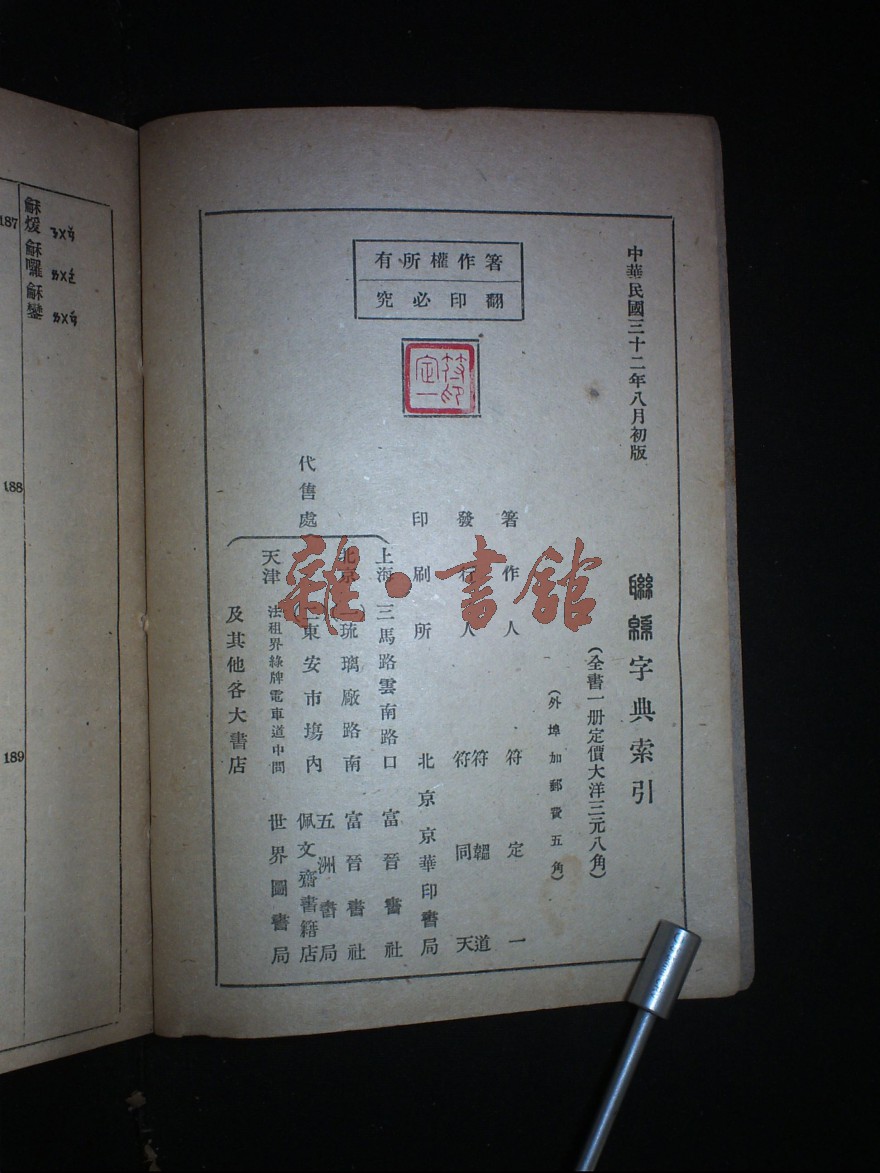 中華民國三十二年八月初版
聯緜字典索引
(全書一册定價大洋三元八角)
(外埠加郵費五角)
箸作權所有
翻印必究
符定一印
箸作人 符定一
發行人 符韞道
符同天
印刷所 北京京華印書局
代售處
上海 三馬路雲南路口 富晉書社
北京 琉璃廠路南 富晉書社
五洲書局
東安市場內 佩文齋書籍店
天津 法租界綠牌電車道中間 世界圖書局
及其他各大書店
雜·書館
187
龢煖 ㄋㄨㄢ
龢囉 ㄌㄨㄛ
龢鑾 ㄌㄨㄢ
188
189